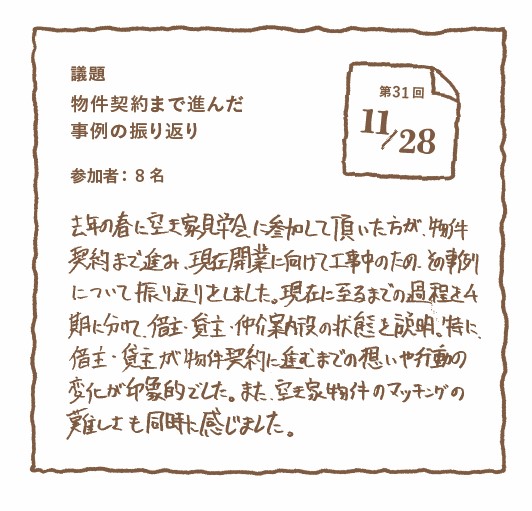 議題
物件契約まで進んだ
事例の振り返り
参加者：8名
第31回
11/28
去年の春に空き家見学会に参加して頂いた方が、物件
契約まで進み、現在開業に向けて工事中のため、その事例
について振り返りをしました。現在に至るまでの過程を4
期に分けて、借主・貸主・仲介案内役の状態を説明。特に、
借主・貸主が物件契約に進むまでの想いや行動の
変化が印象的でした。また、空き家物件のマッチングの
難しさも同時に感じました。